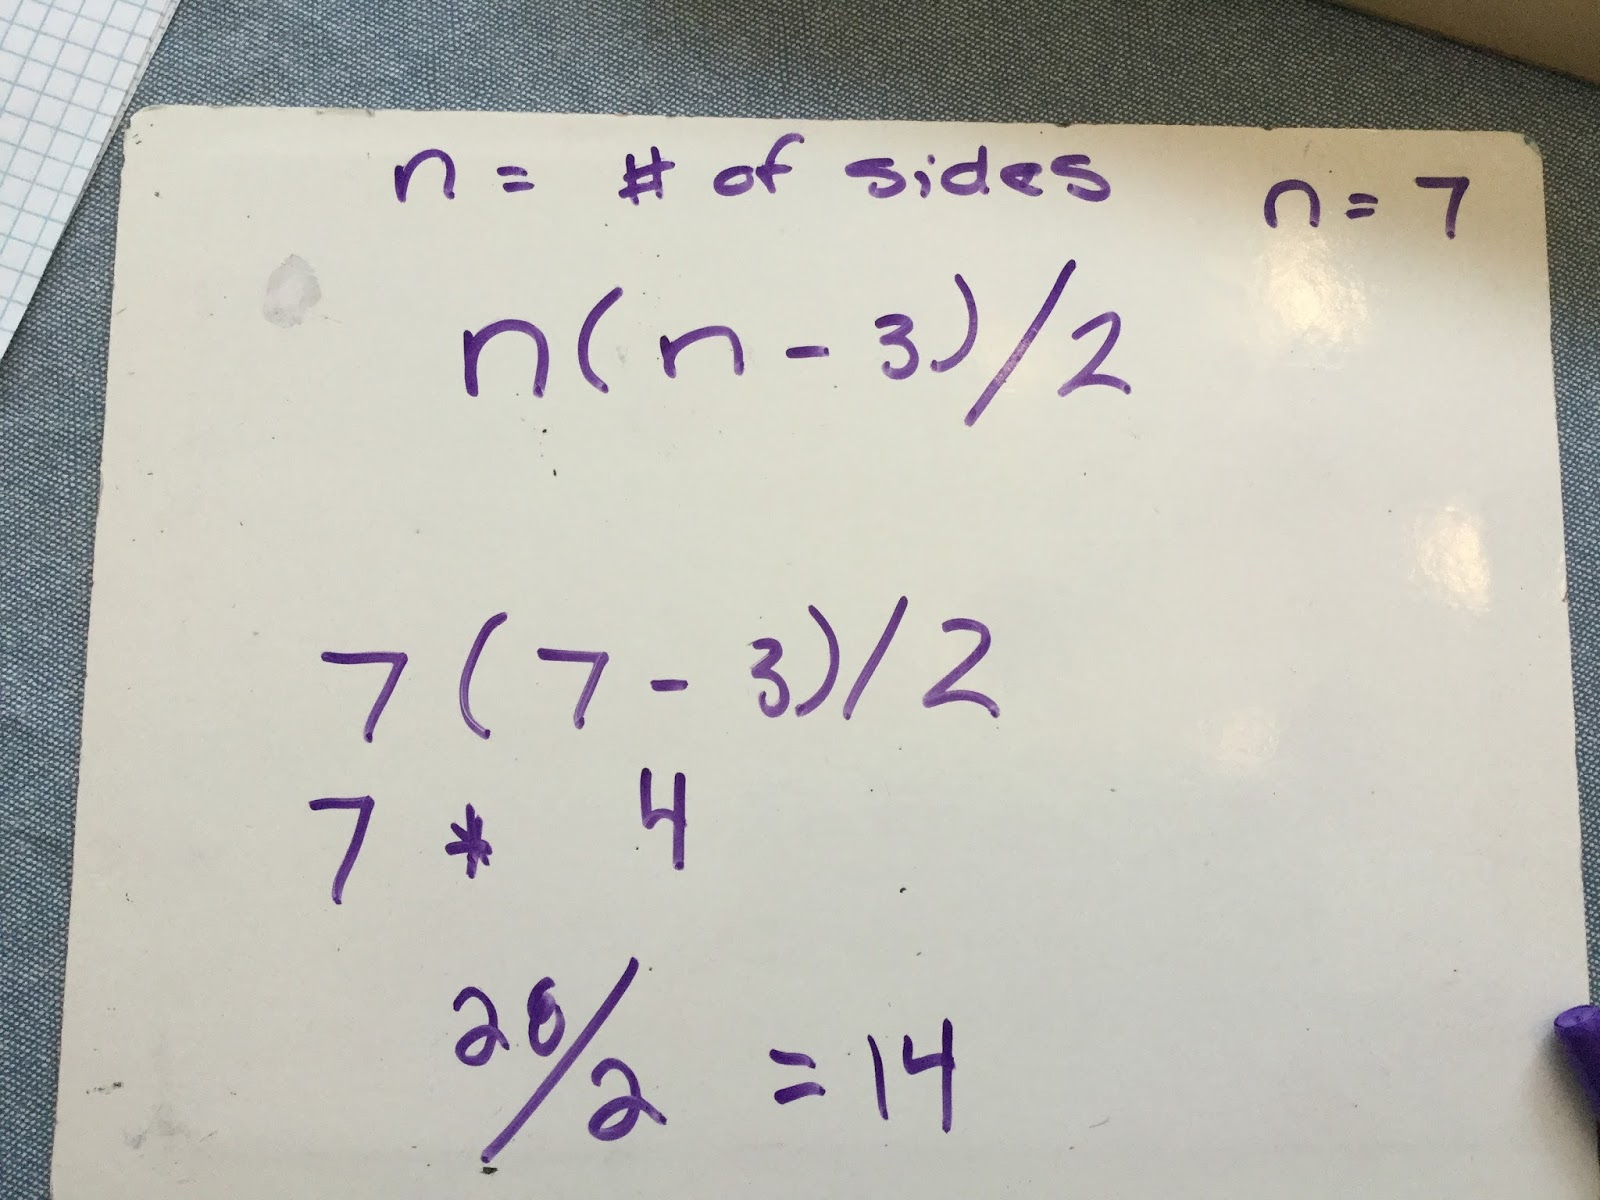 n = # of sides n = 7
n(n - 3)/2
7(7 - 3)/2
7 * 4
28/2 = 14